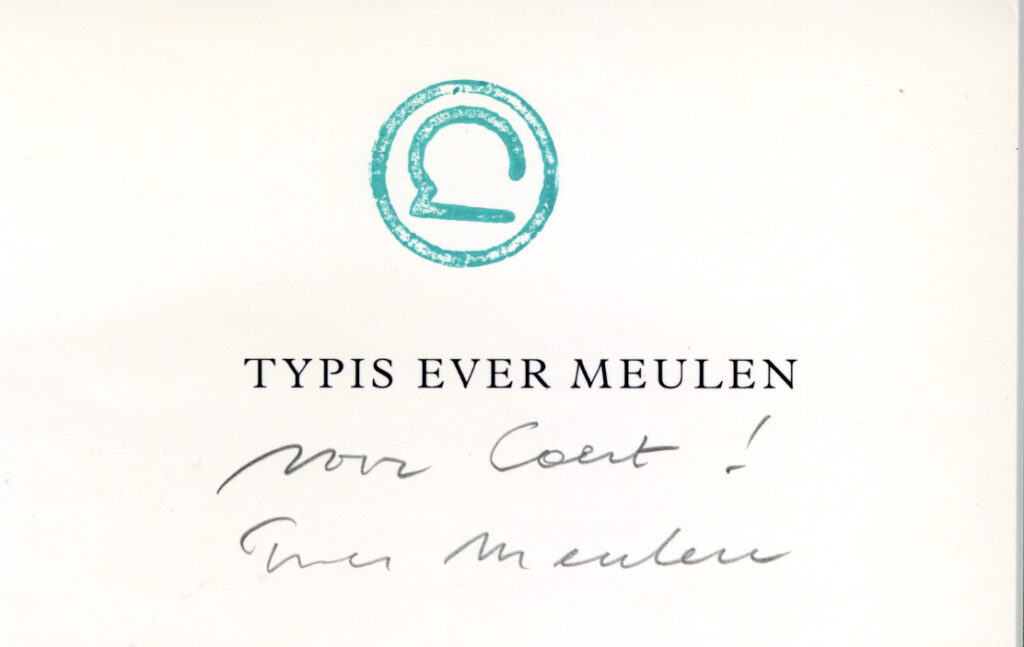 TYPIS EVER MEULEN
voor Coert !
Ever Meulen